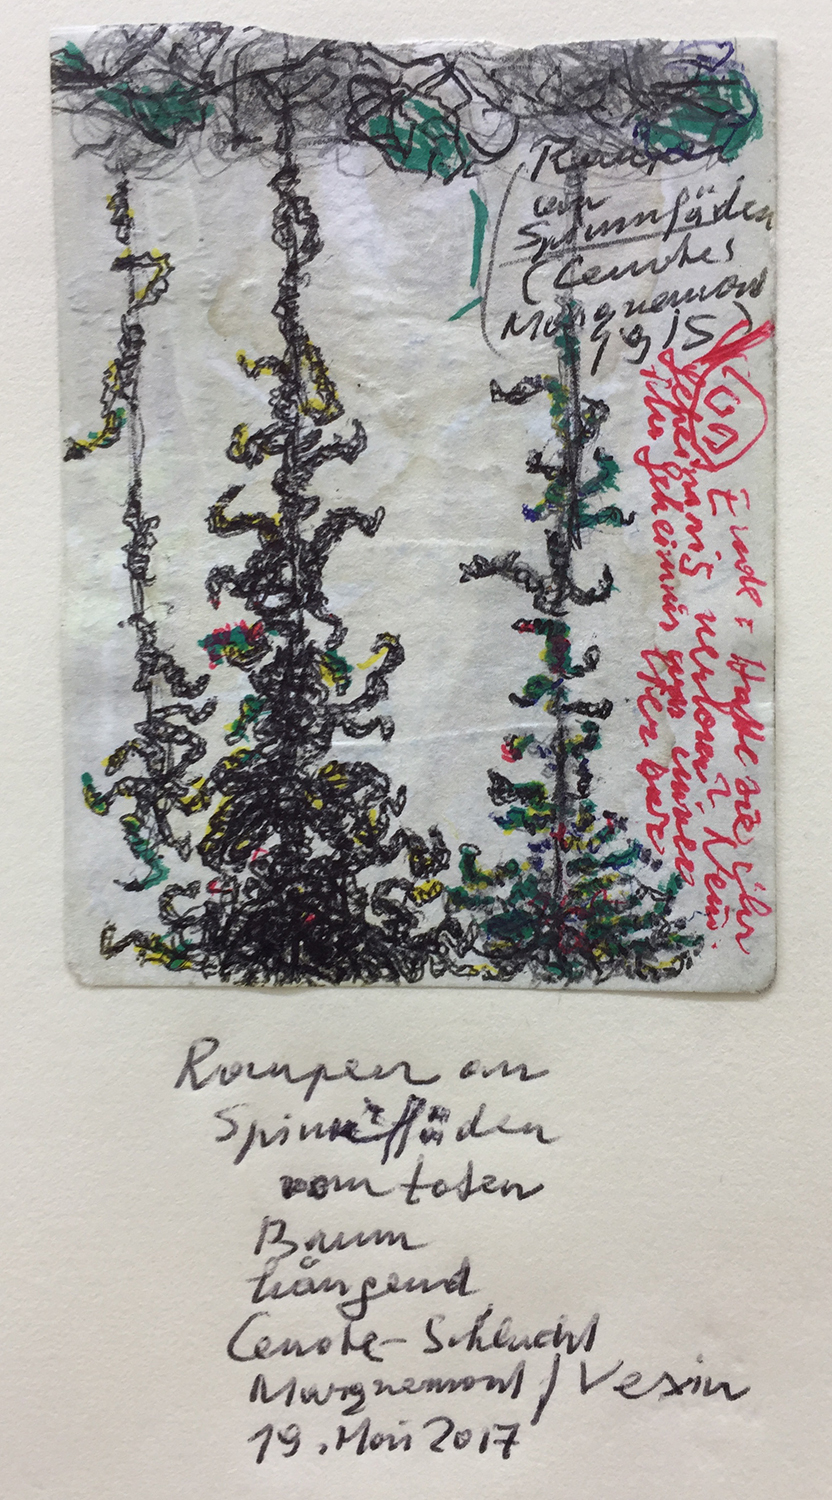 Raupen
an
Spinnfäden
(Cenotes
Marquemont
19 | 5)
Ende : Hatte sie ihr
Geheimnis verloren? Nein.
Ihr Geheimnis war
Raupen an
Spinnfäden
vom toten
Baum
hängend
Cenote-Schlucht
Marquemont / Vexin
19. Mai 2017